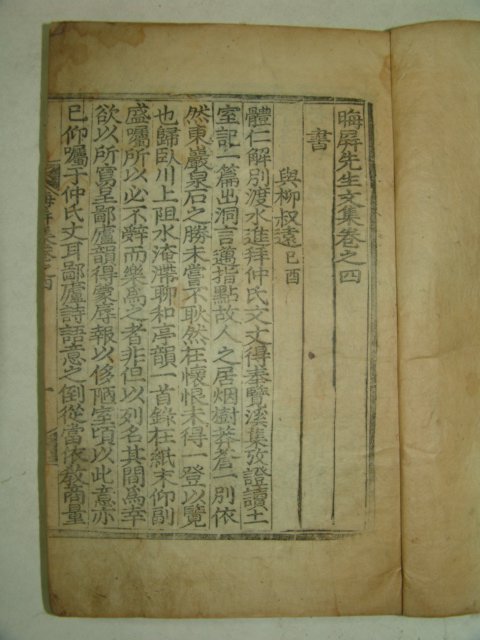 晦屏先生文集卷之四
書
與柳叔遠 己酉
體仁解別渡水進拜仲氏文丈得奉覽溪集攷證讀土
室記一篇出洞言邁指點故人之居烟樹莽蒼一別依
然東巖泉石之勝未嘗不耿然在懷恨未得一登以覽
也歸臥川上阻水淹滯聊和亭韻一首錄在紙末仰副
盛囑所以必不辭而樂爲之者非但以列名其間爲幸
欲以所寫呈鄙廬韻得蒙辱報以侈陋室頃以此意亦
已仰囑于仲氏丈耳鄙廬詩語意之倒從當依敎商量